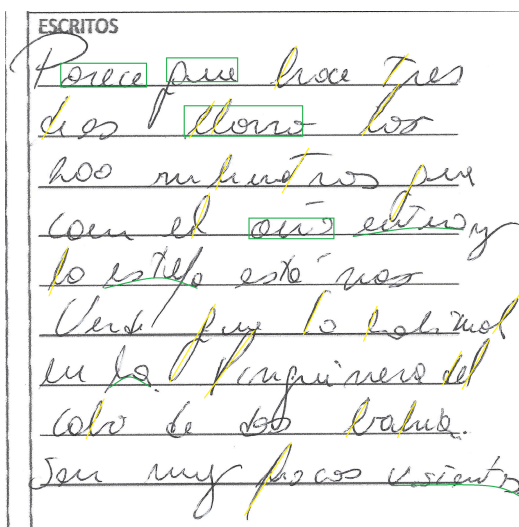 ESCRITOS
Parece que hace tres
dias llovio los
200 milimetros que
caen el año entero y
la estepa está mas
Verde que lo habitual
en la Pinguinera del
cabo de dos bahia.
Son muy pocos